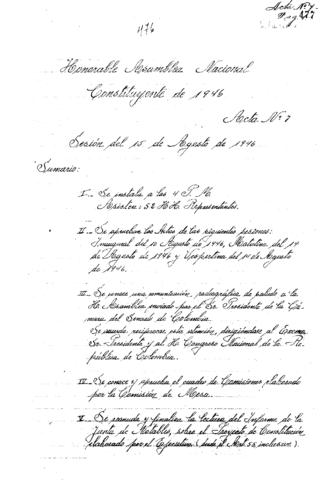 Acta Nº 7.
Pag. 477
476
Honorable Asamblea Nacional
Constituyente de 1946
Acta Nº 7
Sesión del 15 de Agosto de 1946
Sumario:
I.— Se instala a las 4 P. M.
Asisten: 52 HH. Representantes.
II.— Se aprueban las Actas de las siguientes sesiones:
Inaugural del 10 Agosto de 1946, Matutina del 14
de Agosto de 1946 y Vespertina del 14 de Agosto
de 1946.
III.— Se conoce una comunicación radiográfica de saludo a la
H. Asamblea enviada por el Sr. Presidente de la Cá-
mara del Senado de Colombia.
Se acuerda reciprocar esta atención, dirigiéndose al Excmo.
Sr. Presidente y al H. Congreso Nacional de la Re-
pública de Colombia.
IV.— Se conoce y aprueba el cuadro de Comisiones, elaborado
por la Comisión de Mesa.
V.— Se reanuda y finaliza la lectura del Informe de la
Junta de Notables, sobre el Proyecto de Constitución
elaborado por el Ejecutivo (desde el Art. 55 inclusive).